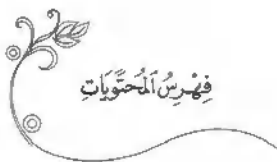 فِهْرِسُ الْمُحْتَوَيَاتِ